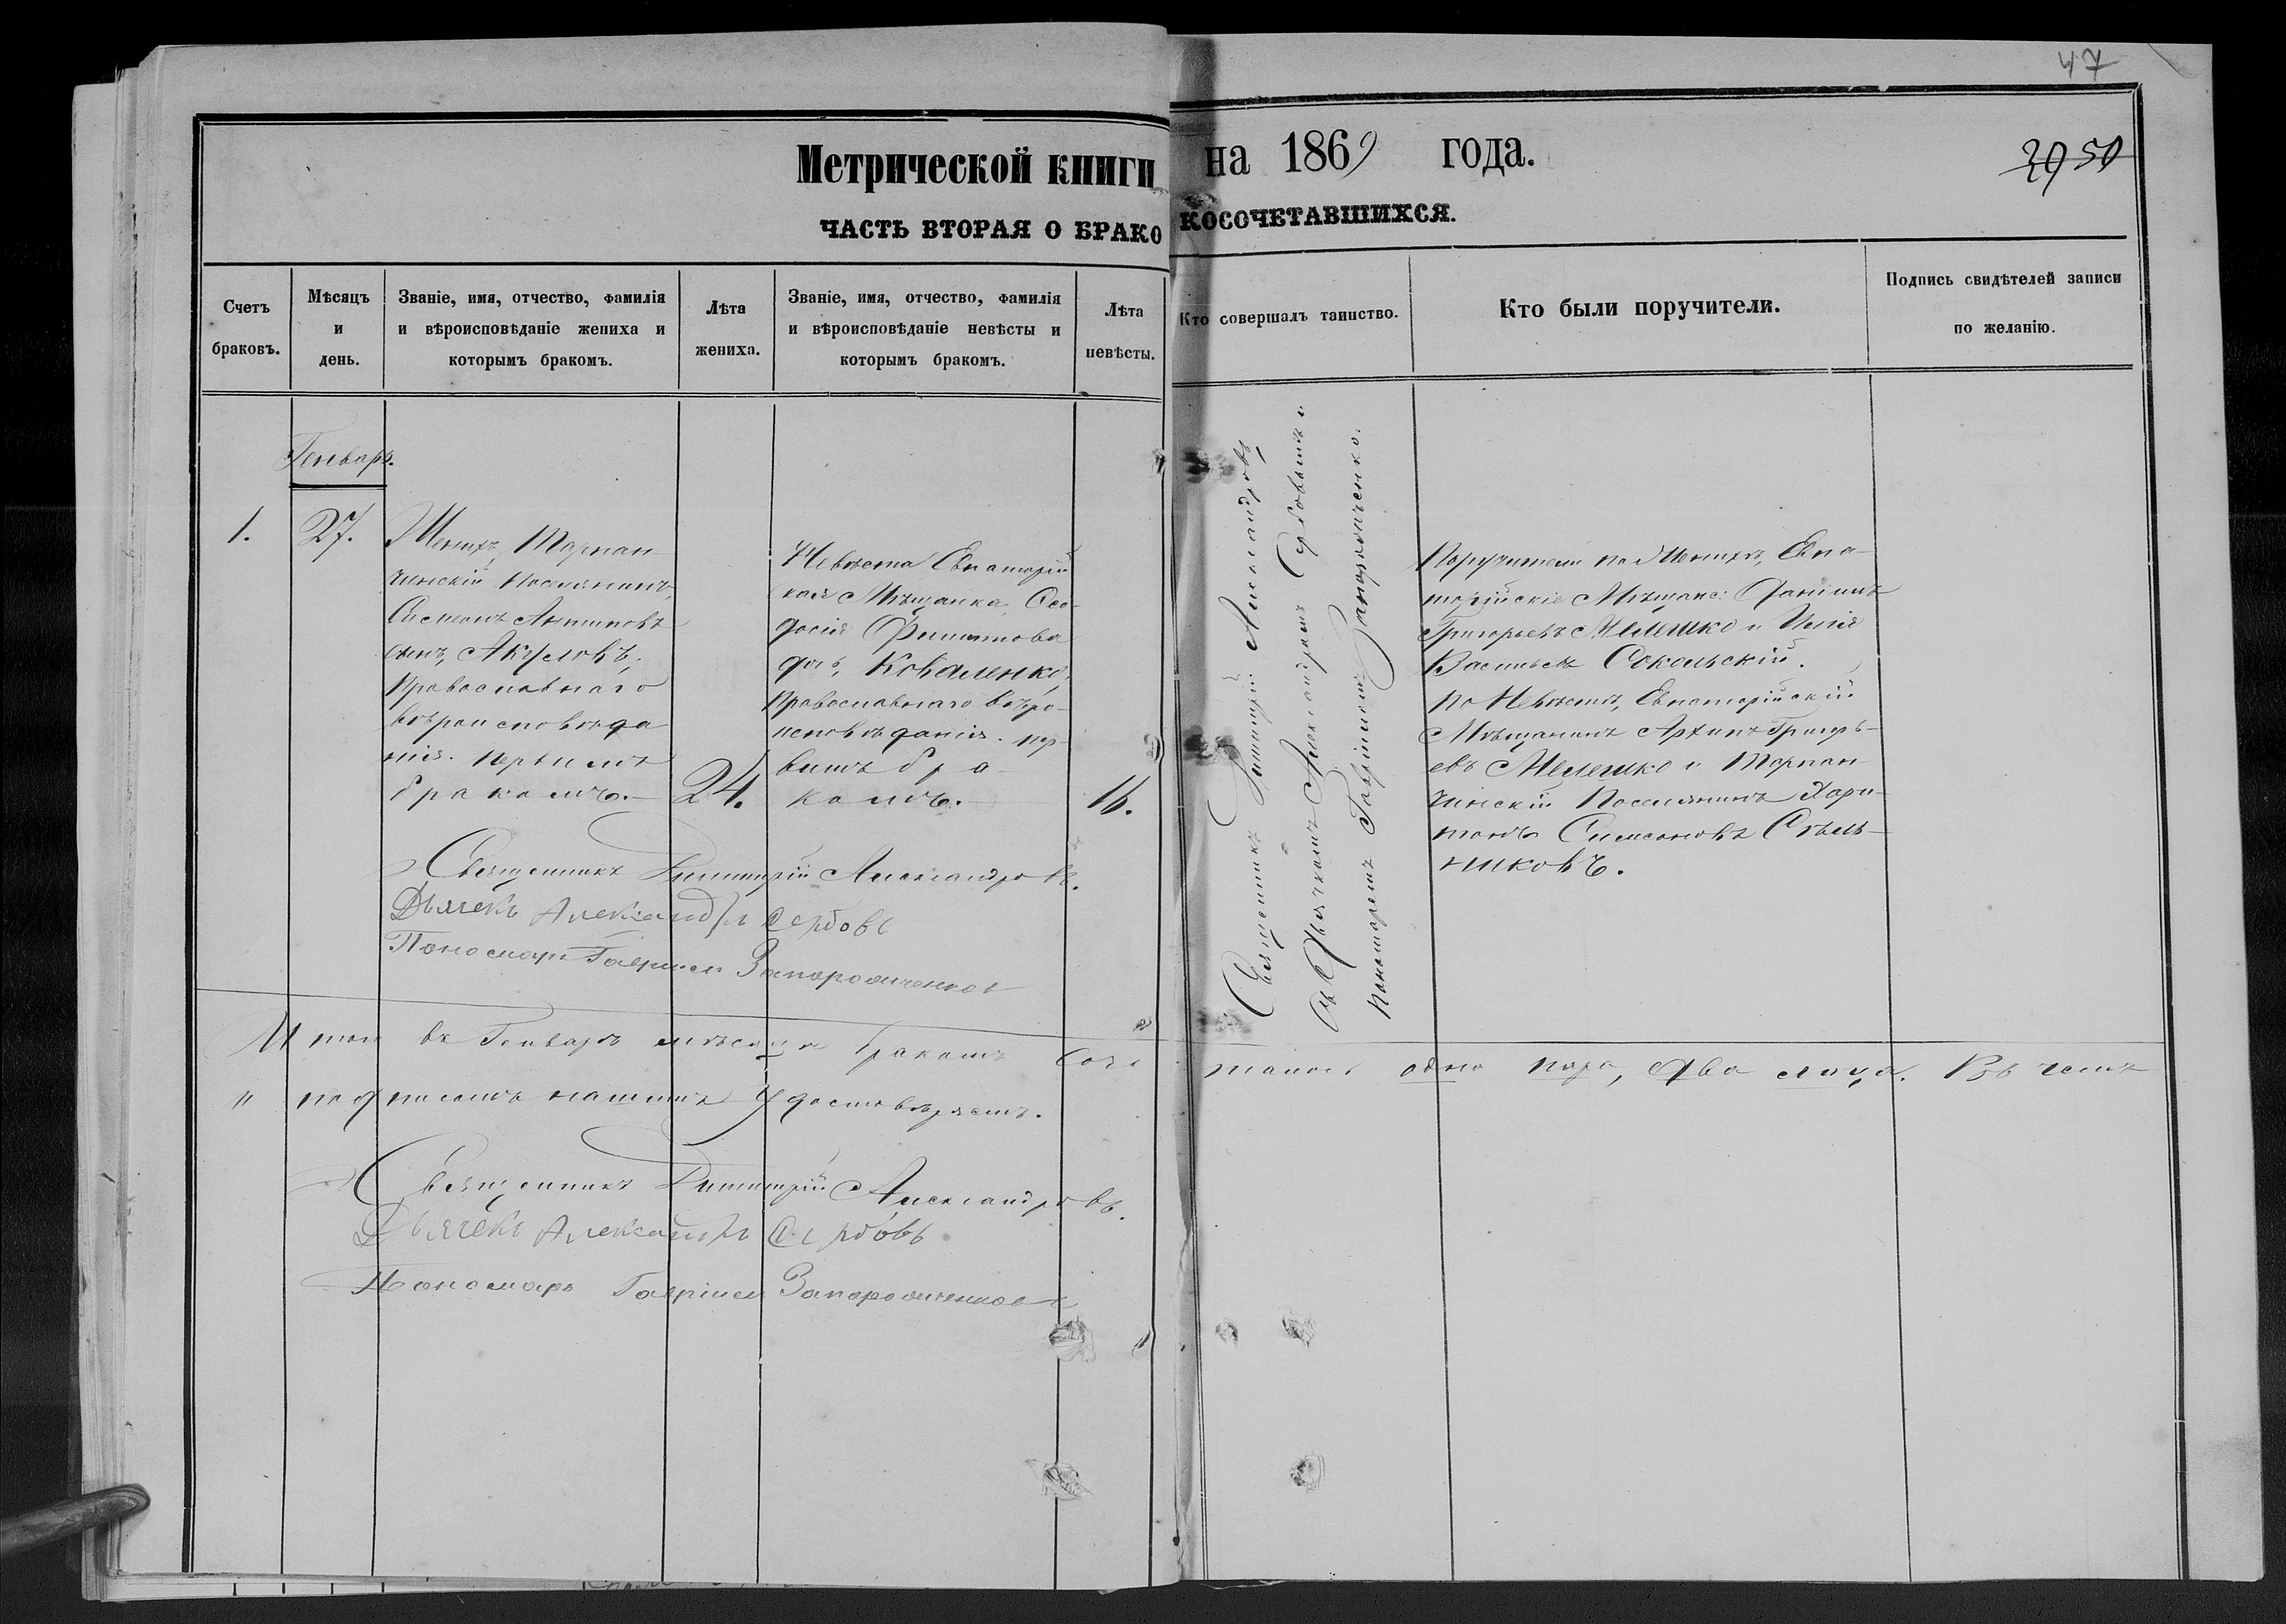 47
Метрической книги на 1869 года.
39 50
ЧАСТЬ ВТОРАЯ О БРАКОСОЧЕТАВШИХСЯ.
Счетъ браковъ.
Мѣсяцъ и день.
Званіе, имя, отчество, фамилія
и вѣроисповѣданіе жениха и
которымъ бракомъ.
Лѣта жениха.
Званіе, имя, отчество, фамилія
и вѣроисповѣданіе невѣсты и
которымъ бракомъ.
Лѣта невѣсты.
Кто совершалъ таинство.
Кто были поручители.
Подпись свидѣтелей записи
по желанію.
Генварь.
1.
27.
Женихъ, Тарпан
чинскій Поселянинъ,
Симеонъ Антиповъ
сынъ, Акуловъ,
Православнаго
вѣроисповѣда
нія. Первымъ
бракомъ.
24.
Невѣста Евпаторій
кая Мѣщанка, Ѳео-
досія Филиппова
дочь, Коваленко,
Православнаго вѣро-
исповѣданія. пер-
вымъ бра-
комъ.
16.
Священникъ Димитрій Александровъ
съ Дьячкомъ Александромъ Сербовымъ и
Пономаремъ Гавріиломъ Запорожченко.
Поручители по Женихѣ, Евпа-
торійскіе Мѣщане: Даніилъ
Григорьевъ Мелешко и Илія
Васильевъ Сокольскій.
по Невѣстѣ, Евпаторійскій
Мѣщанинъ Архипъ Григорь-
евъ Мелешко и Тарпан
чинскій Поселянинъ Хари-
тонъ Симеоновъ Стѣль-
никовъ.
Священникъ Димитрій Александровъ.
Дьячекъ Александръ Сербовъ
Пономарь Гавріилъ Запорожченко
Итого въ Генварѣ мѣсяцѣ бракомъ соче талось одна пара, два лица. Въ чемъ
и подписомъ нашимъ удостовѣряемъ.
Священникъ Димитрій Александровъ.
Дьячекъ Александръ Сербовъ
Пономарь Гавріилъ Запорожченко